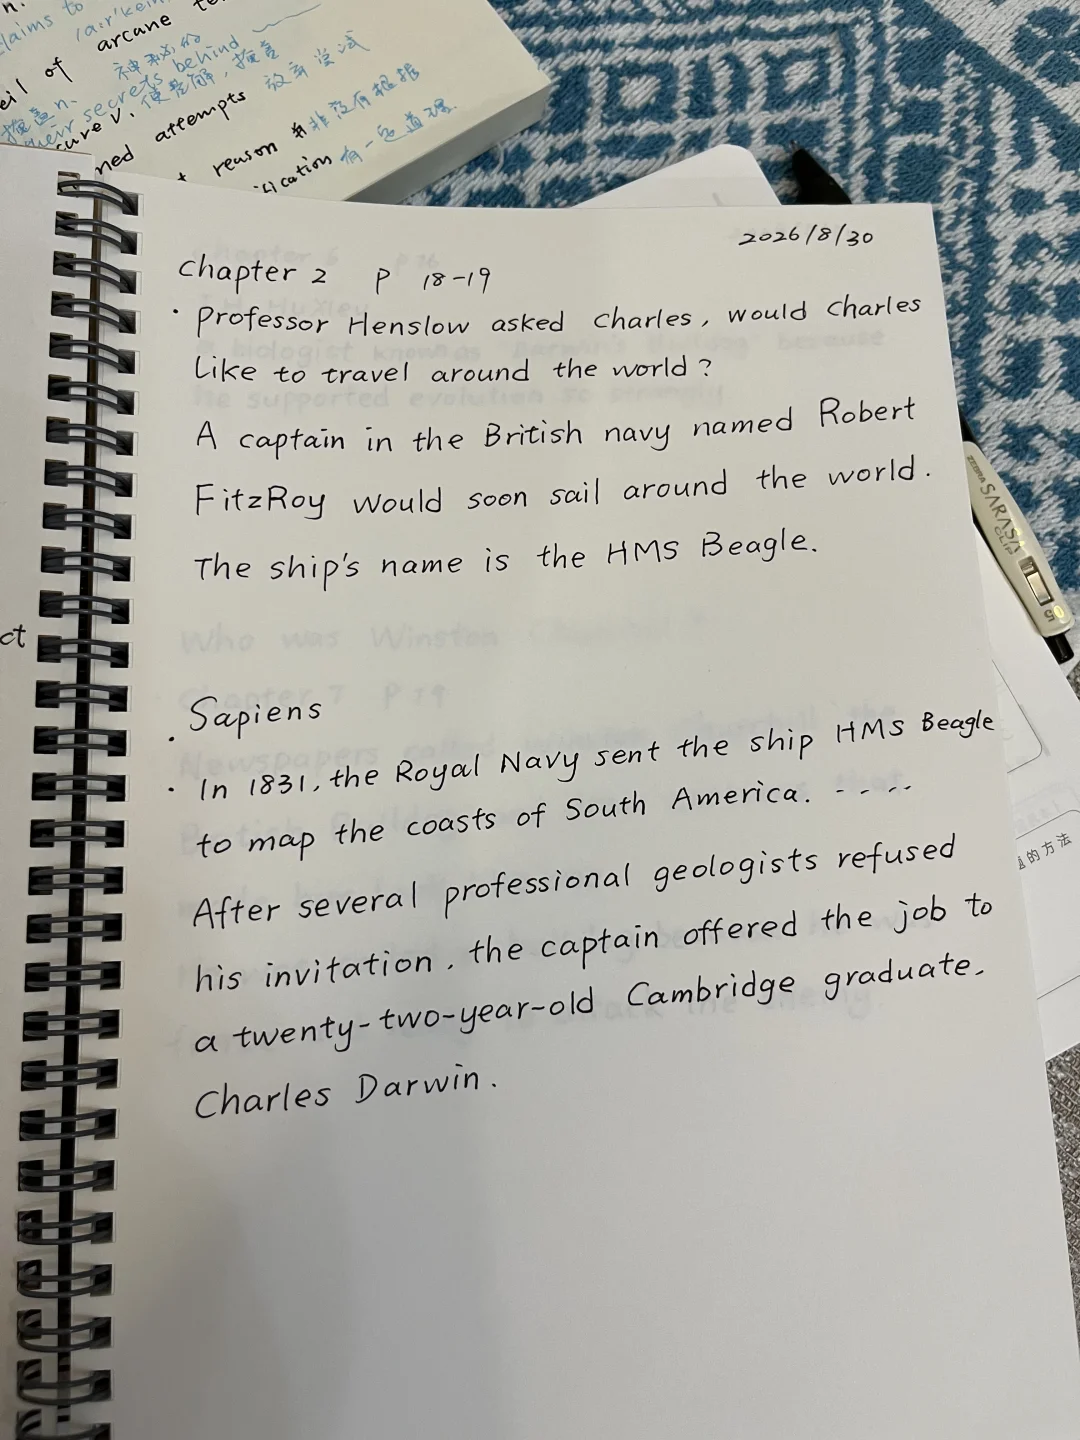 n.
claims to
arcane te
eil of
神秘的
their secrets behind
掩盖n.
cure v. 使费解, 掩盖
ned attempts 放弃尝试
reason 非没有根据
lication 有一定道理.
2026/8/30
Chapter 2 P 18-19
· Professor Henslow asked Charles, would Charles
like to travel around the world?
A captain in the British navy named Robert
FitzRoy would soon sail around the world.
The ship's name is the HMS Beagle.
ct
Who was Winston
Chapter 7 P 19
· Sapiens
· In 1831, the Royal Navy sent the ship HMS Beagle
to map the coasts of South America. ----
After several professional geologists refused
his invitation, the captain offered the job to
a twenty-two-year-old Cambridge graduate,
Charles Darwin.
ZEBRA SARASA CLIP 0.5
的方法